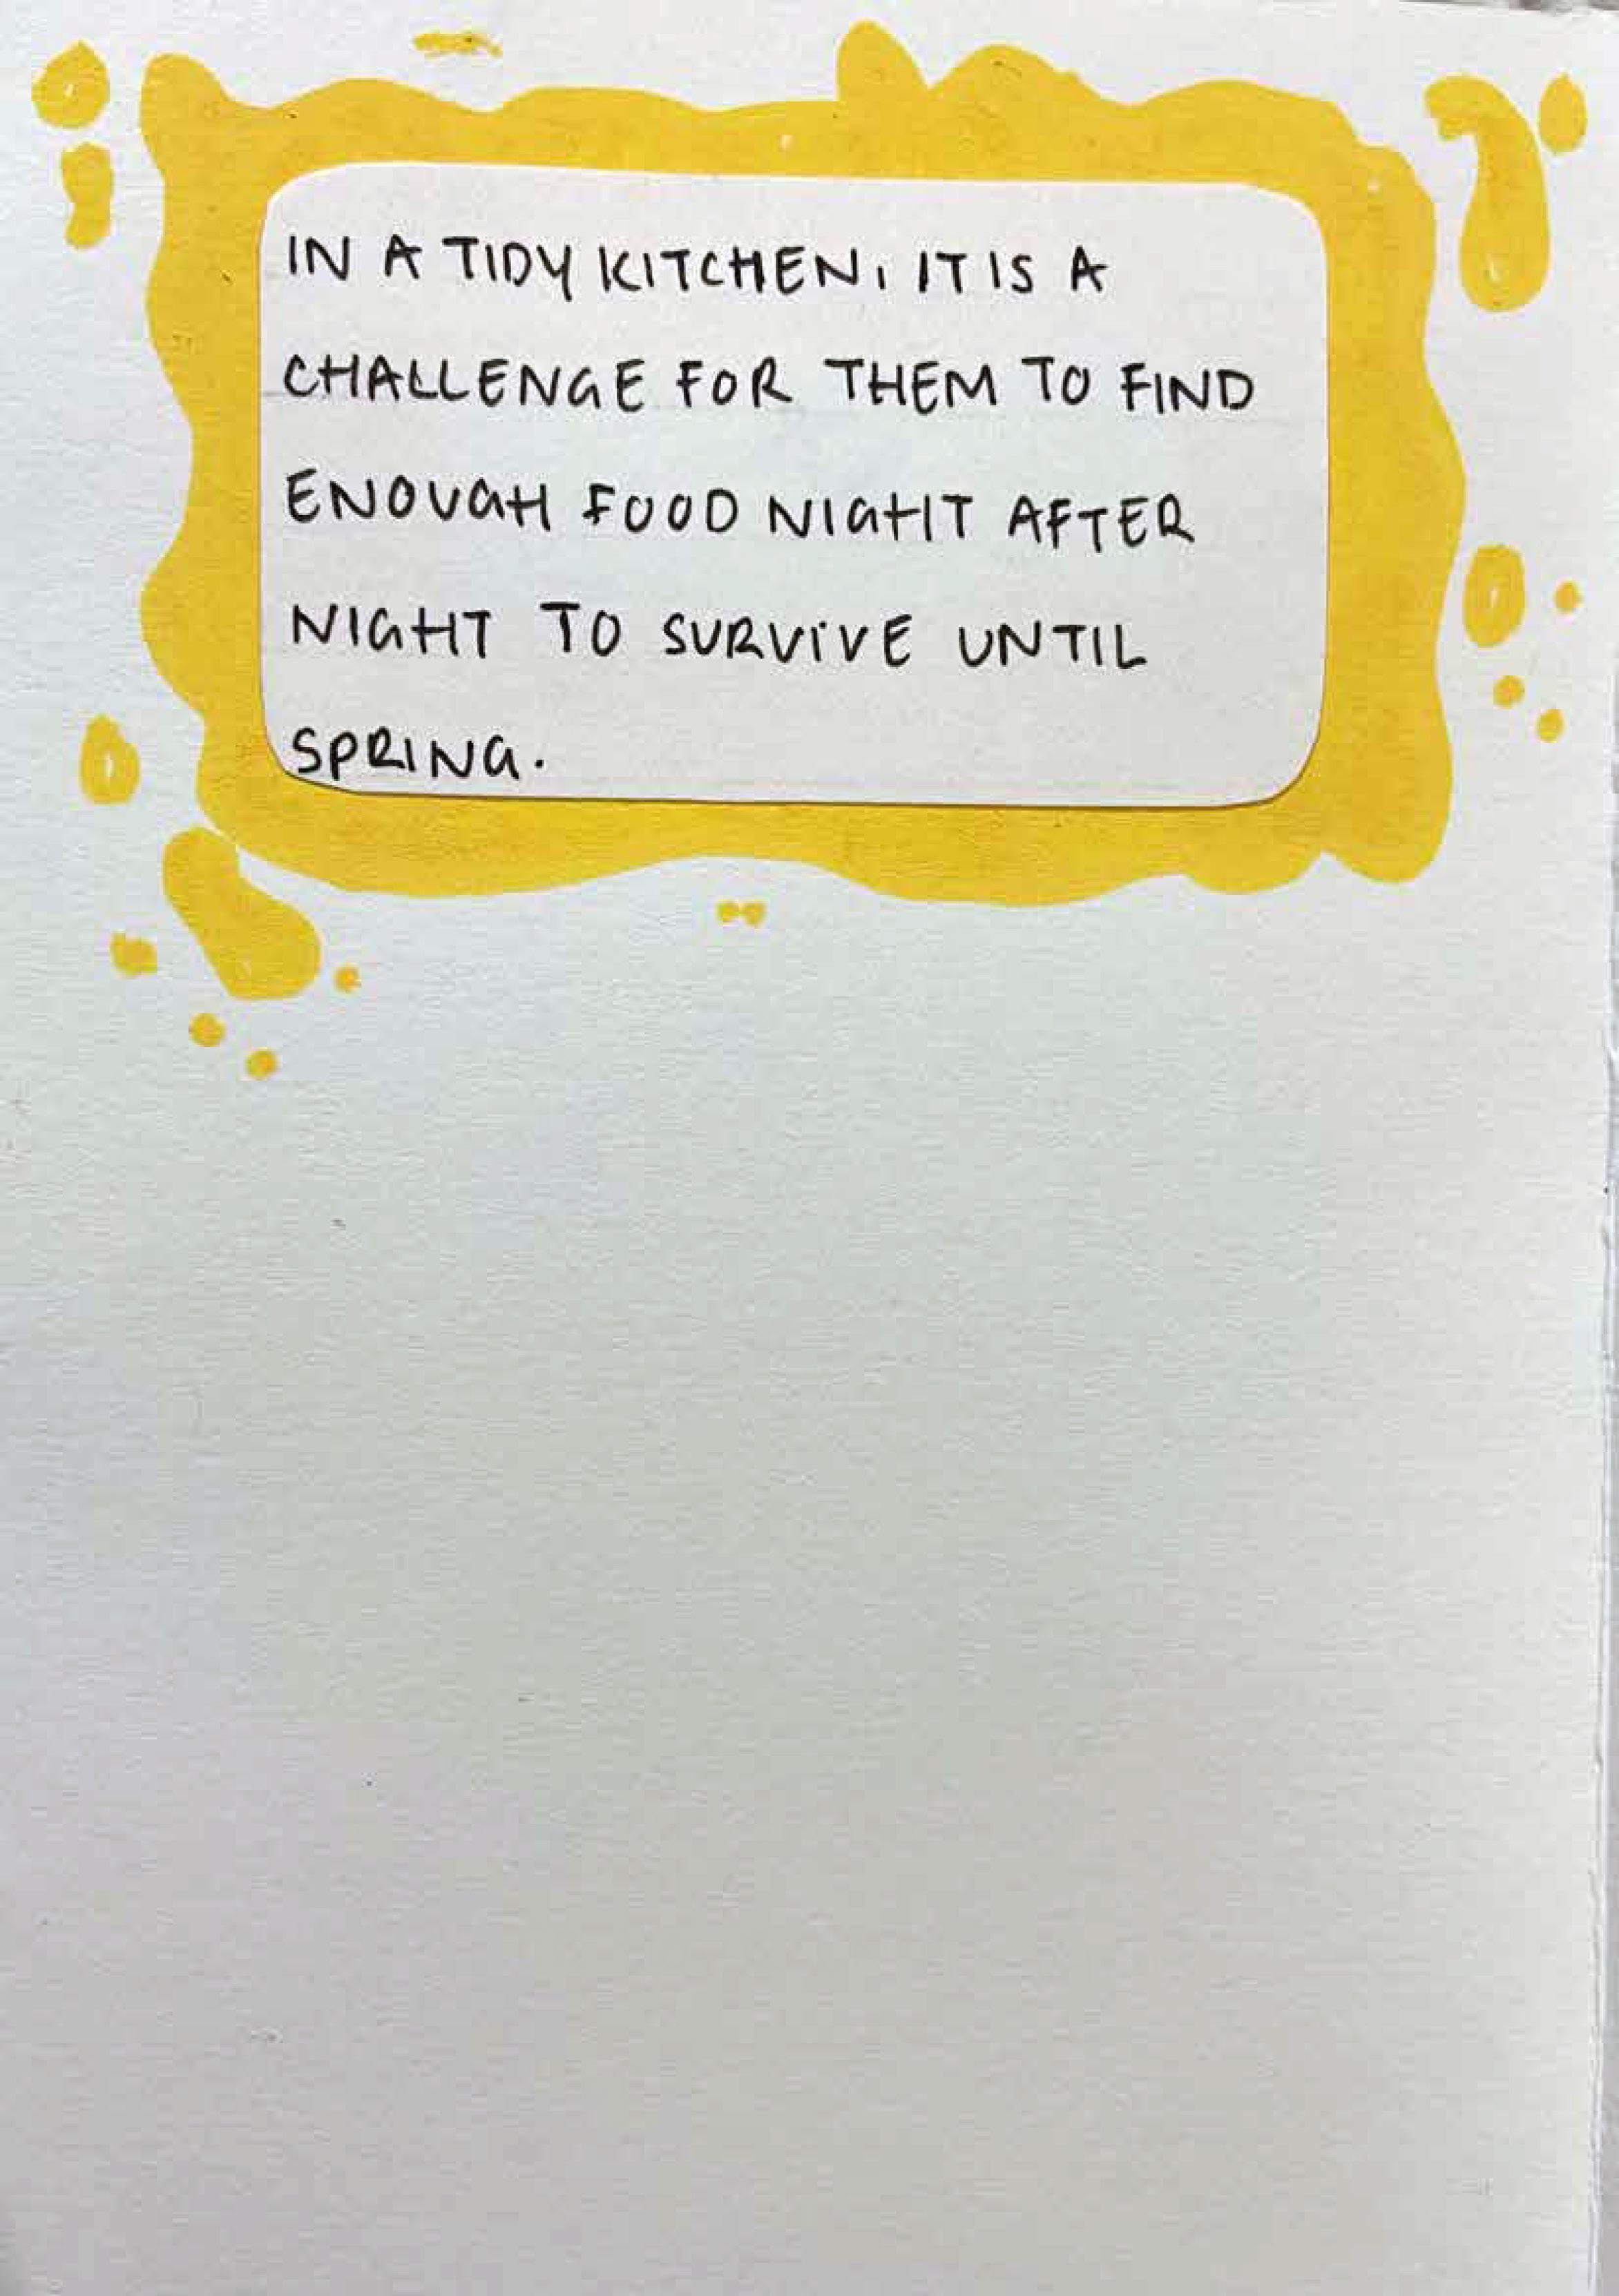 IN A TIDY KITCHEN, IT IS A
CHALLENGE FOR THEM TO FIND
ENOUGH FOOD NIGHT AFTER
NIGHT TO SURVIVE UNTIL
SPRING.